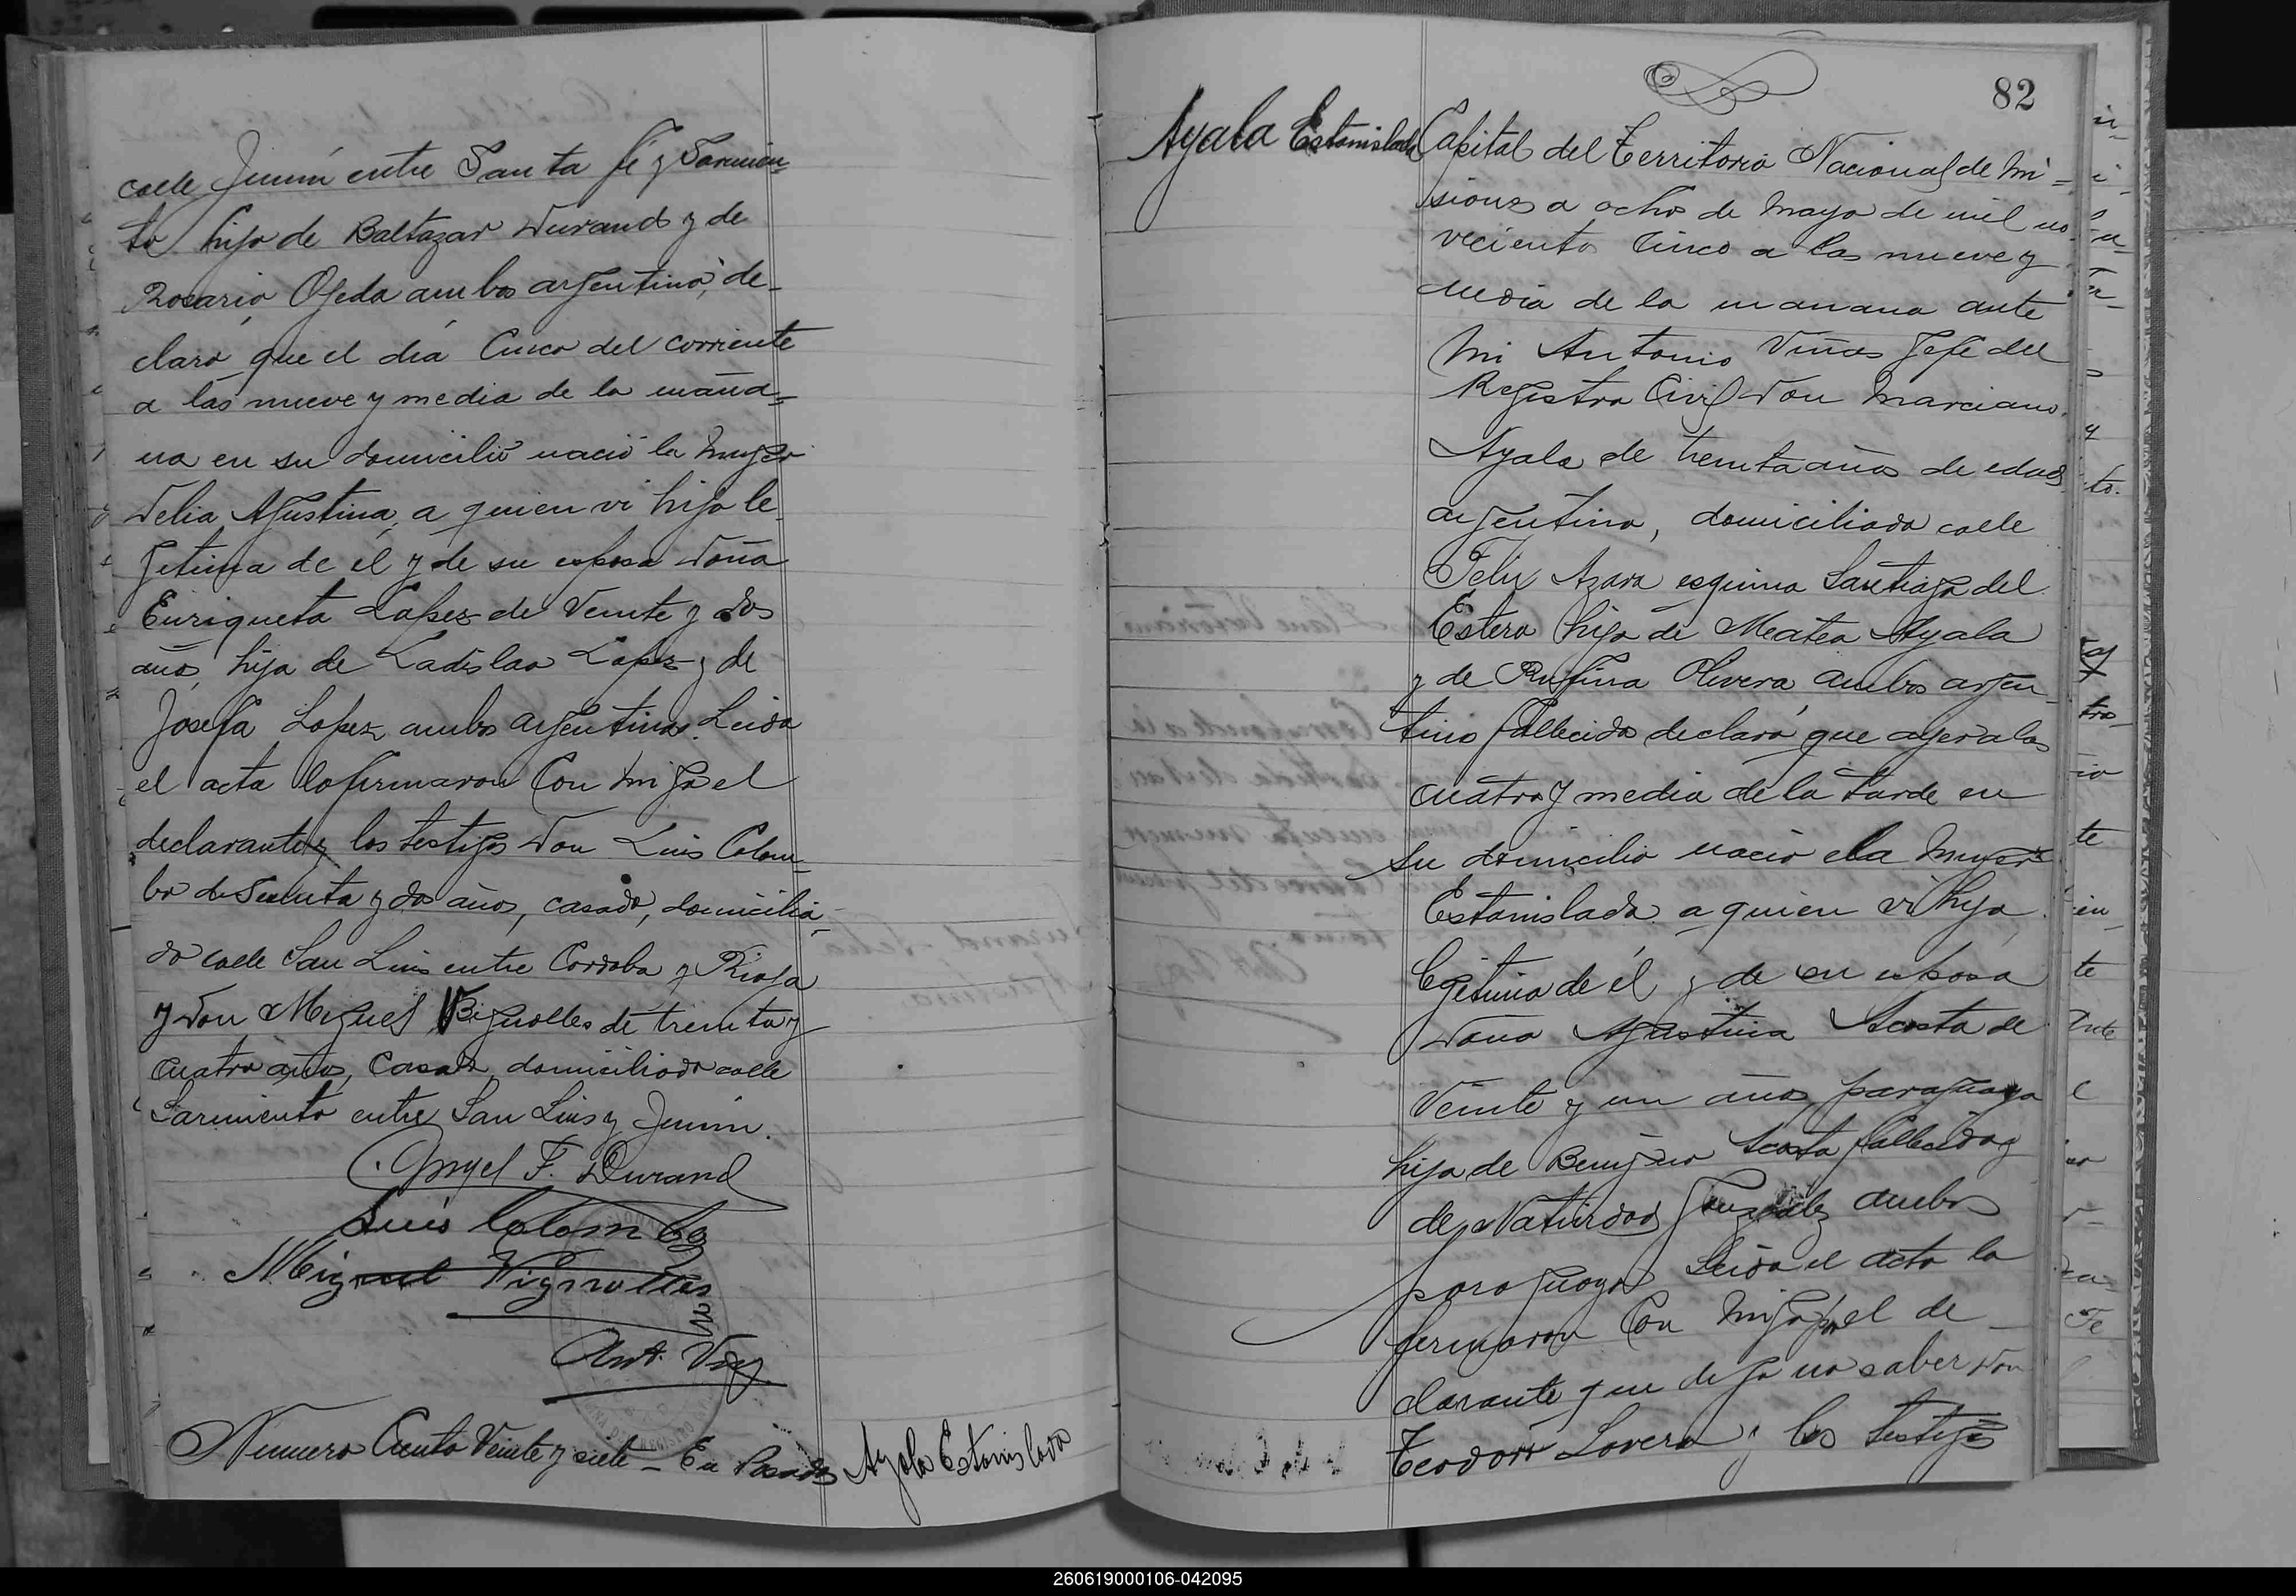 calle Junín entre Santa fé y Sarmien=
to hijo de Baltazar Durand y de
Rosario Ojeda ambos argentinos, de-
claró que el día Cinco del corriente
a las nueve y media de la maña=
na en su domicilio nació la mujer
Delia Agustina, a quien vi hija le
jitima de él y de su esposa Doña
Enriqueta Lopez de Veinte y dos
años hija de Ladislao Lopez y de
Josefa Lopez ambos argentinos. Leida
el acta la firmaron Con migo el
declarante y los testigos Don Luis Colom-
bo de y dos años, casado, domicilia-
do calle San Luis entre Cordoba y Rioja
y Don Miguel Vignolles de treinta y
cuatro años, Casado, domiciliado calle
Sarmiento entre San Luis y Junín.
Angel F. Durand
Luis Colombo
Miguel Vignolles
Ant. Viñas
Numero Ciento Veinte y siete - En Posadas
Ayala Estanislada
82
Ayala Estanislada
Capital del Territorio Nacional de Mi=
siones a ocho de Mayo de mil no-
vecientos Cinco a las nueve y
media de la manana ante
Mi Antonio Viñas Jefe del
Registro Civil Don Marciano
Ayala de treinta años de edad
argentino, domiciliado calle
Felix Azara esquina Santiago del
Estero hijo de Mateo Ayala
y de Rufina Olivera ambos arjen-
tinos fallecidos declaró que ayer a las
cuatro y media de la tarde en
su domicilio nació la Mujer
Estanislada a quien vi hija
lejitima de él y de su esposa
Doña Agustina Acosta de
Veinte y un años paraguaya
hija de Benigno Acosta fallecido y
de Natividad Gonzalez ambos
paraguayos Leida el acta la
firmaron Con migo por el de-
clarante que dijo no saber Don
Teodoro Lovera y los testigos
260619000106-042095